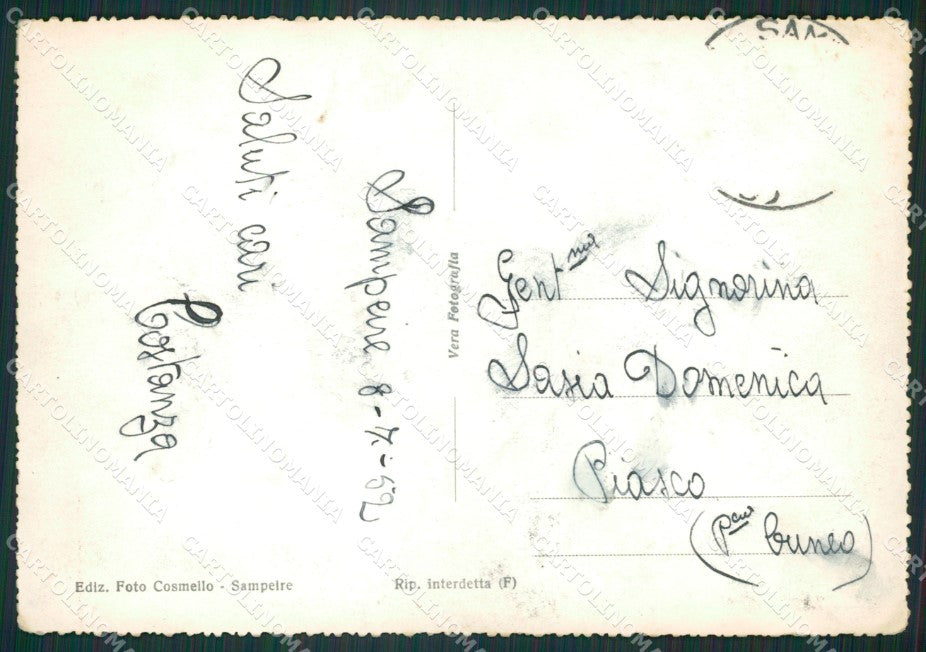 Sampeire 8-7-52
Saluti cari
Costanza
Vera Fotografia
Gent.ma Signorina
Sasia Domenica
Piasco
(Pcia Cuneo)
Ediz. Foto Cosmello - Sampeire
Rip. interdetta (F)
SAM
CARTOLINOMANIA